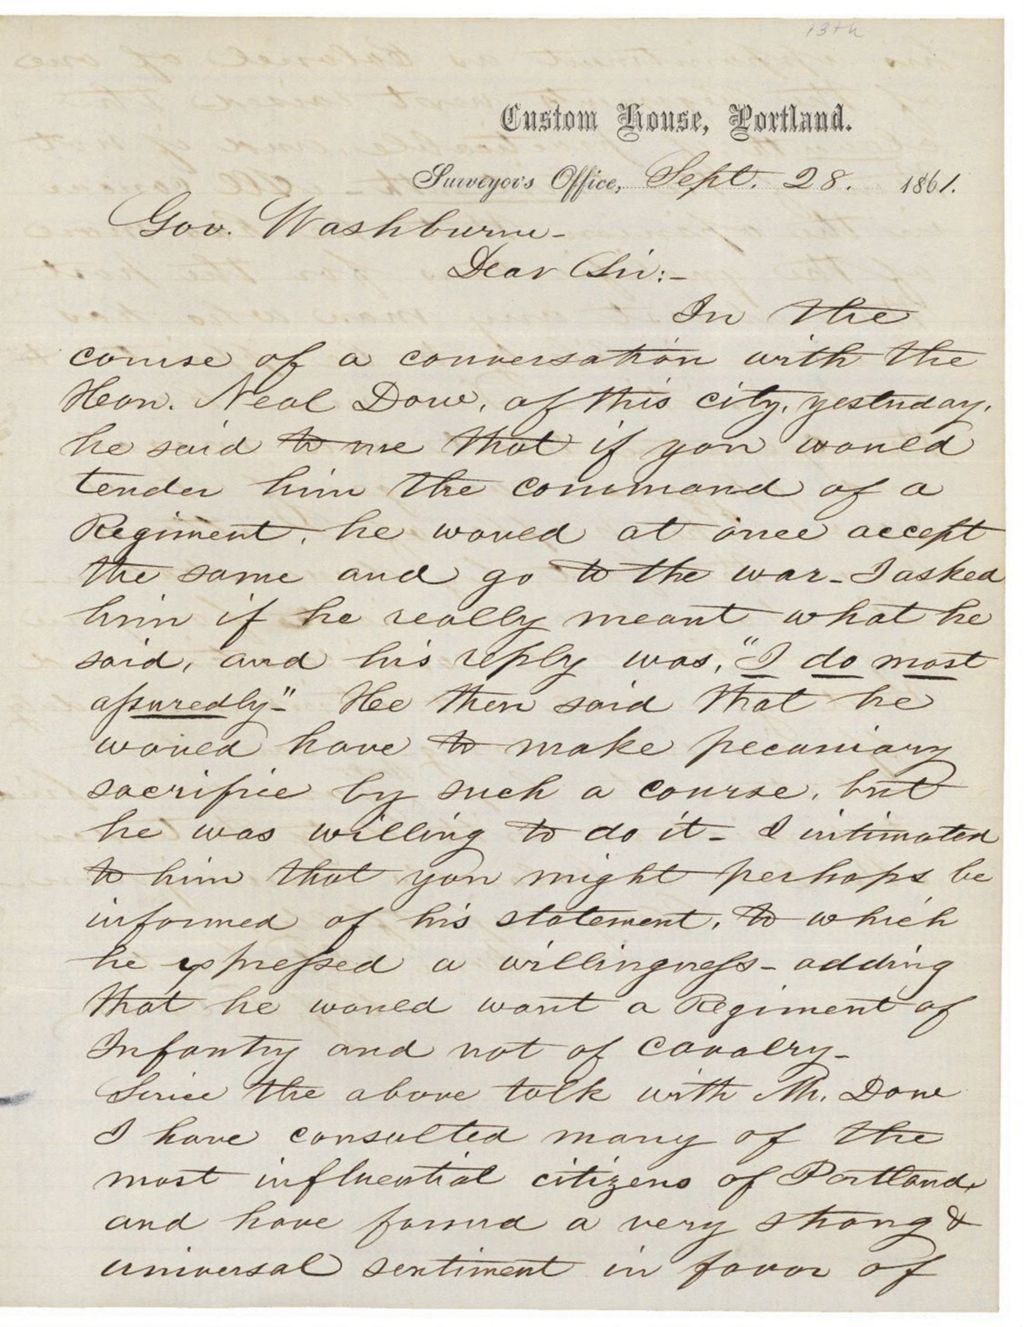 13th
Custom House, Portland.
Surveyor's Office, Sept. 28. 1861.
Gov. Washburne -
Dear Sir: -
In the
course of a conversation with the
Hon. Neal Dow, of this city, yesterday,
he said to me that if you would
tender him the command of a
Regiment, he would at once accept
the same and go to the war - I asked
him if he really meant what he
said, and his reply was, "I do most
assuredly." He then said that he
would have to make pecuniary
sacrifice by such a course, but
he was willing to do it - I intimated
to him that you might perhaps be
informed of his statement, to which
he expressed a willingness - adding
that he would want a Regiment of
Infantry and not of Cavalry -
Since the above talk with Mr. Dow
I have consulted many of the
most influential citizens of Portland,
and have found a very strong &
universal sentiment in favor of